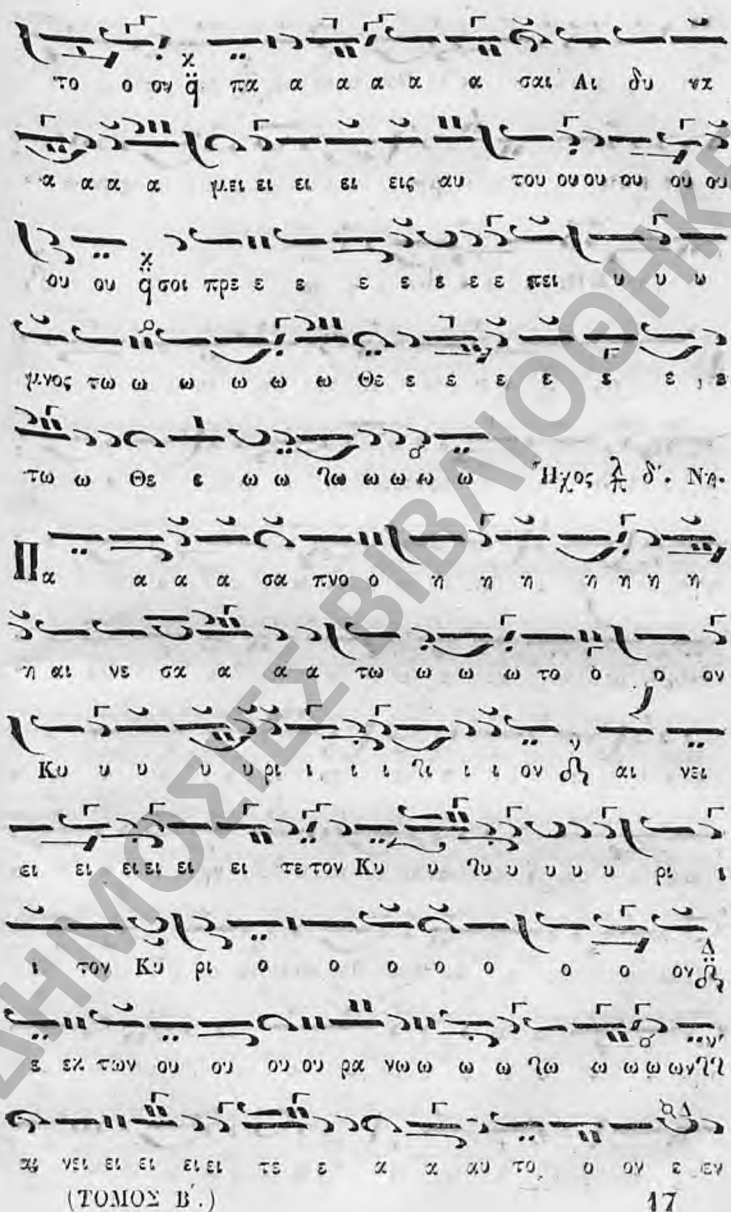 το ο ον πα α α α α α σαι Αι δυ να
α α α α μει ει ει ει εις αυ του ου ου ου ου ου
ου ου σοι πρε ε ε ε ε ε ε ε πει υ υ ω
μνος τω ω ω ω ω ω Θε ε ε ε ε ε ε , ε
τω ω Θε ε ω ω ω ω ω ω Ἦχος λ/π δ΄. Νη.
Πα α α α σα πνο ο η η η η η η η
η αι νε σα α α α τω ω ω ω το ο ο ον
Κυ υ υ υ υ ρι ι ι ι ι ι ι ον αι νει
ει ει ει ει ει ει τε τον Κυ υ υ υ υ υ ρι ι
ι τον Κυ ρι ο ο ο ο ο ο ο ον Δ
ε εκ των ου ου ου ου ρα νω ω ω ω ω ω ω ω ων
αι νει ει ει ει ει τε ε α α αυ το ο ον ε εν
(ΤΟΜΟΣ Β΄.) 17
ΔΗΜΟΣΙΕΣ ΒΙΒΛΙΟΘΗΚΕ